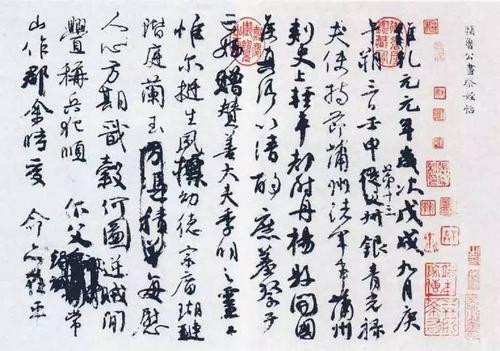 顏魯公書祭姪帖
維乾元元年歲次戊戌九月庚
午朔三日壬申第十三銀青光祿
夫使持節蒲州諸軍事蒲州
刺史上輕車都尉丹楊縣開國
侯真卿以清酌庶羞祭于
亡姪贈贊善大夫季明之靈曰
惟爾挺生夙標幼德宗廟瑚璉
階庭蘭玉方憑積善每慰
人心方期戩穀何圖逆賊閒
釁稱兵犯順爾父常
山作郡余時受命亦在平